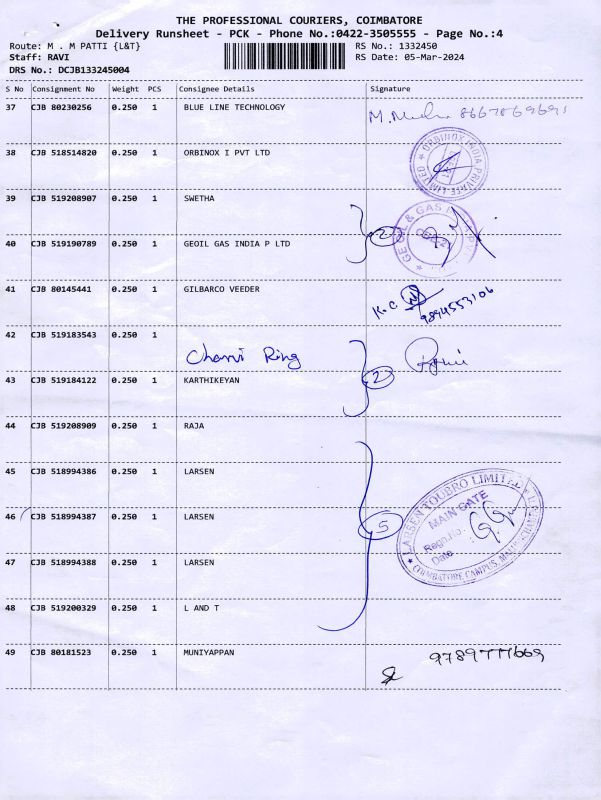 THE PROFESSIONAL COURIERS, COIMBATORE
Delivery Runsheet - PCK - Phone No.:0422-3505555 - Page No.:4
Route: M . M PATTI {L&T}
RS No.: 1332450
Staff: RAVI
RS Date: 05-Mar-2024
DRS No.: DCJB133245004
S No Consignment No Weight PCS Consignee Details Signature
37 CJB 80230256 0.250 1 BLUE LINE TECHNOLOGY
38 CJB 518514820 0.250 1 ORBINOX I PVT LTD
ORBINOX INDIA PRIVATE LIMITED
39 CJB 519208907 0.250 1 SWETHA
2
40 CJB 519190789 0.250 1 GEOIL GAS INDIA P LTD
41 CJB 80145441 0.250 1 GILBARCO VEEDER
K.C
9894553106
42 CJB 519183543 0.250 1
Ring
2
43 CJB 519184122 0.250 1 KARTHIKEYAN
44 CJB 519208909 0.250 1 RAJA
45 CJB 518994386 0.250 1 LARSEN
46 CJB 518994387 0.250 1 LARSEN
5
LARSEN TOUBRO LIMITED
MAIN GATE
Regn.No.
Date
COIMBATORE CAMPUS
47 CJB 518994388 0.250 1 LARSEN
48 CJB 519200329 0.250 1 L AND T
49 CJB 80181523 0.250 1 MUNIYAPPAN